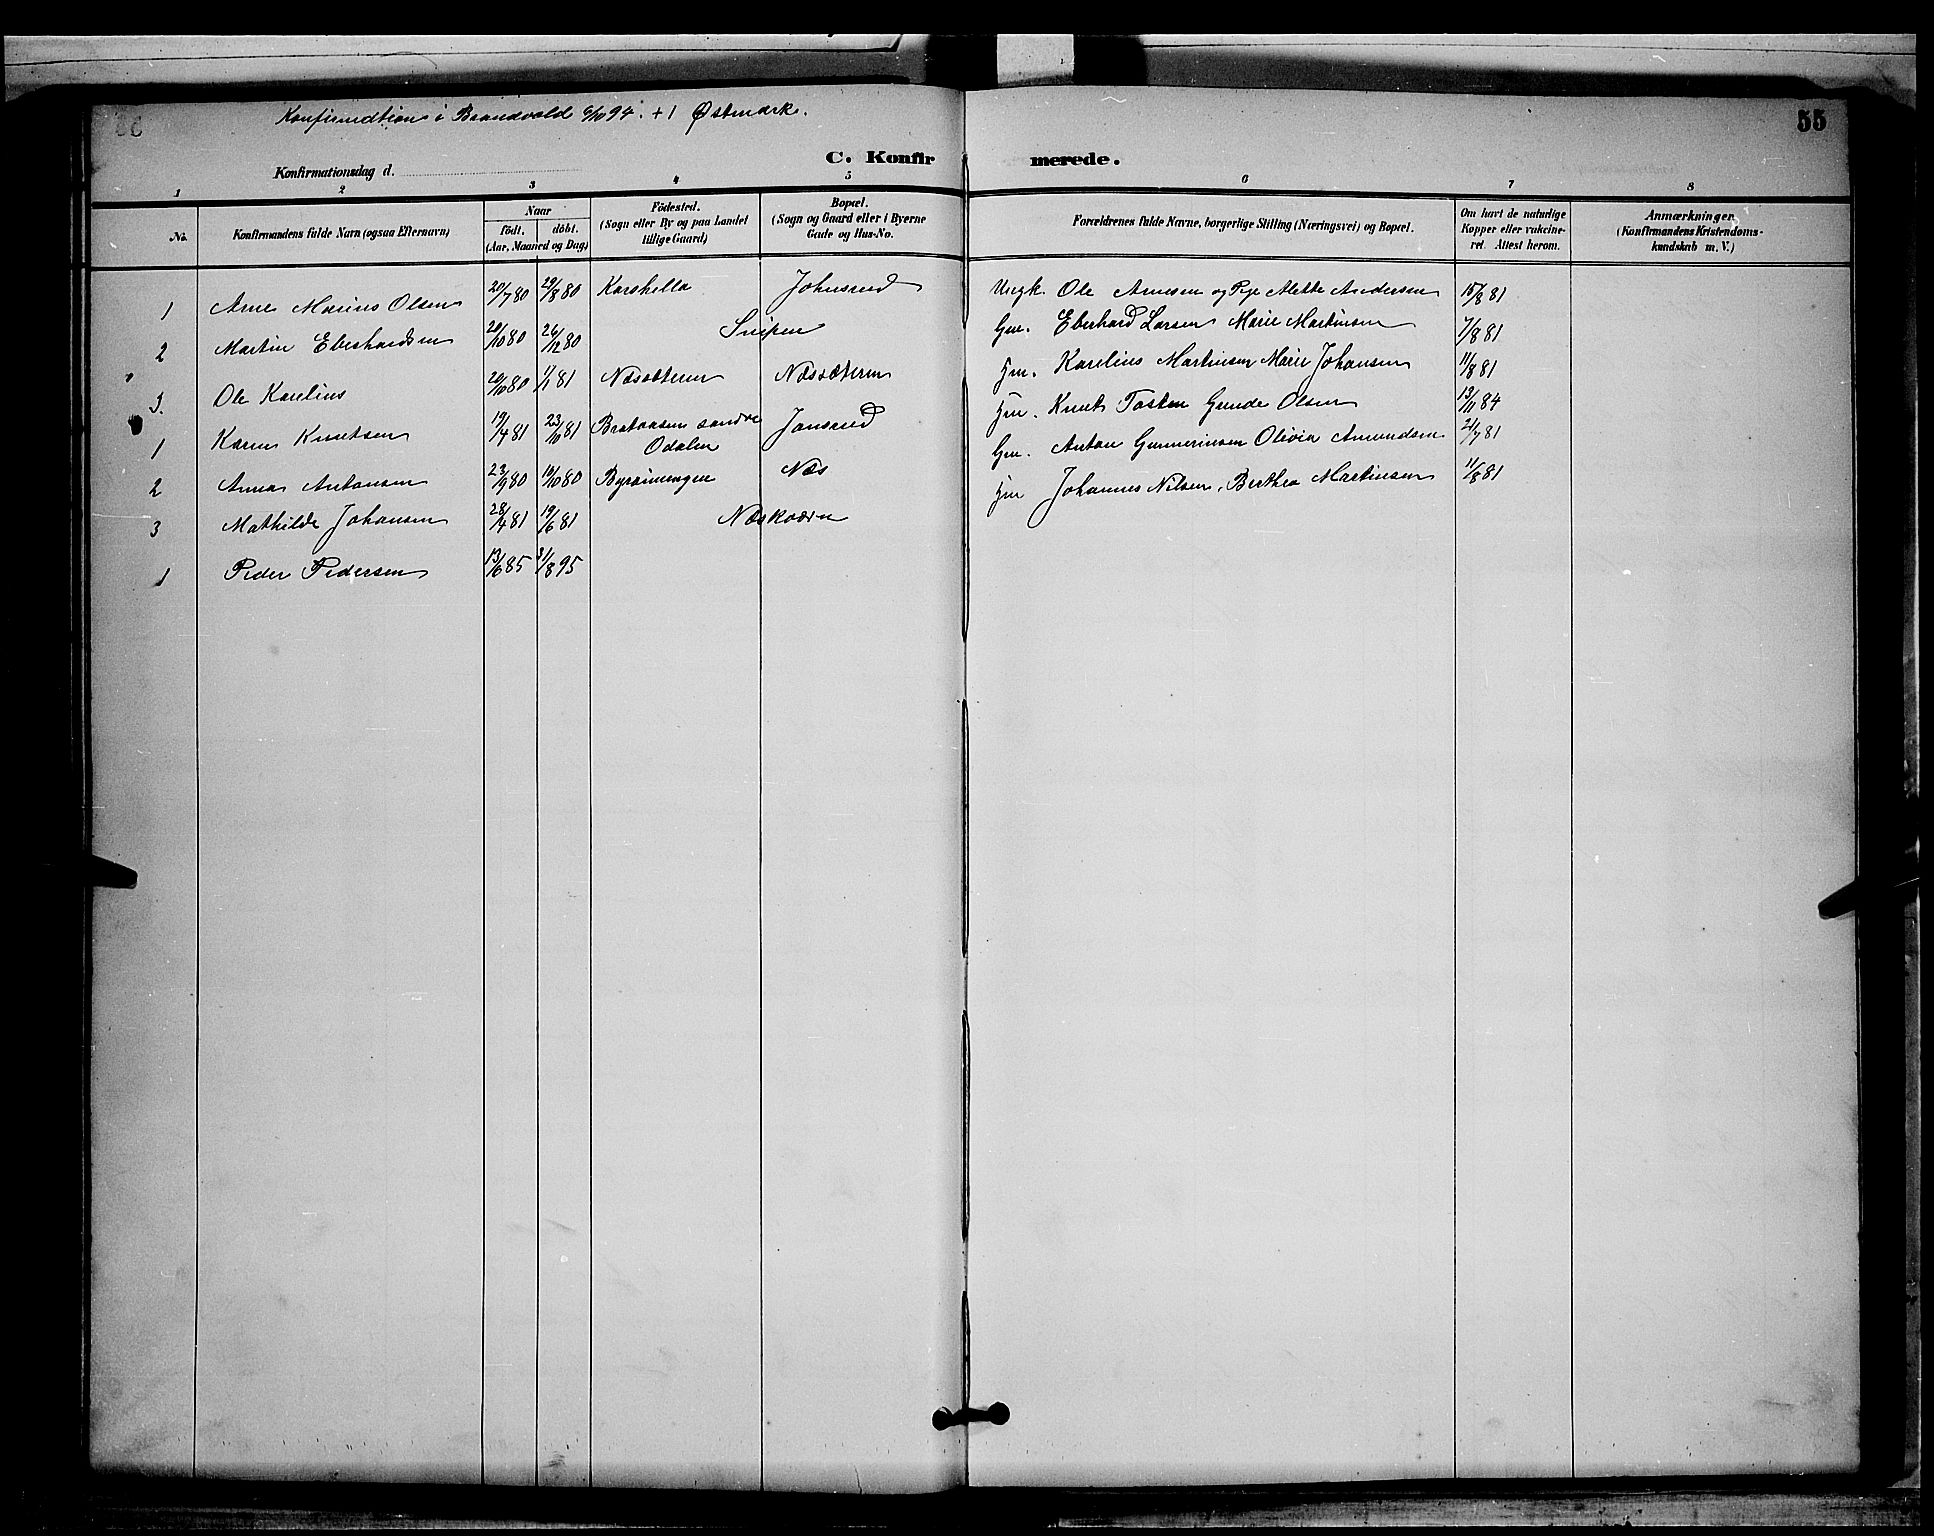 Konfirmationi Brandvold 6/10 94. +1 Østmark.
55
C. Konfirmerede.
Konfirmationsdag d.
1 2 3 4 5 6 7 8
No.
Konfirmandens fulde Navn (ogsaa Efternavn)
Naar
födt. döbt.
(Aar, Maaned og Dag)
Födested.
(Sogn eller By og paa Landet
tillige Gaard)
Bopæl.
(Sogn og Gaard eller i Byerne
Gade og Hus-No.
Forældrenes fulde Navne, borgerlige Stilling (Næringsvei) og Bopæl.
Om havt de naturlige
Kopper eller vakcine-
ret. Attest herom.
Anmærkninger
(Konfirmandens Kristendoms-
kundskab m. V.)
1 Arne Marius Olsen 20/7 80 29/8 80 Karshella Johnsrud Ungk. Ole Arnesen og Pige Alette Andersen 15/8 81
2 Martin Eberhardsen 20/10 80 26/12 80 Snipen Gm. Eberhard Larsen Marie Martinsen 7/8 81
3. Ole Karelius 20/10 80 1/1 81 Næssæteren Næssæteren Hm. Karelius Martinsen Marie Johansen 11/8 81
1 Karen Knutsen 19/4 81 23/10 81 Brataasen søndre Odalen Jansrud Hm. Knut Tosten Gunde Olsen 13/11 84
2 Anna Antonsen 23/9 80 10/10 80 Næs Gm. Anton Gunnerinsen Olivia Amundsen 21/7 81
3 Mathilde Johansen 28/4 81 19/6 81 Næskværn Hm Johannes Nilsen, Berthea Martinsen 11/8 81
1 Peder Pedersen 13/6 85 31/8 95